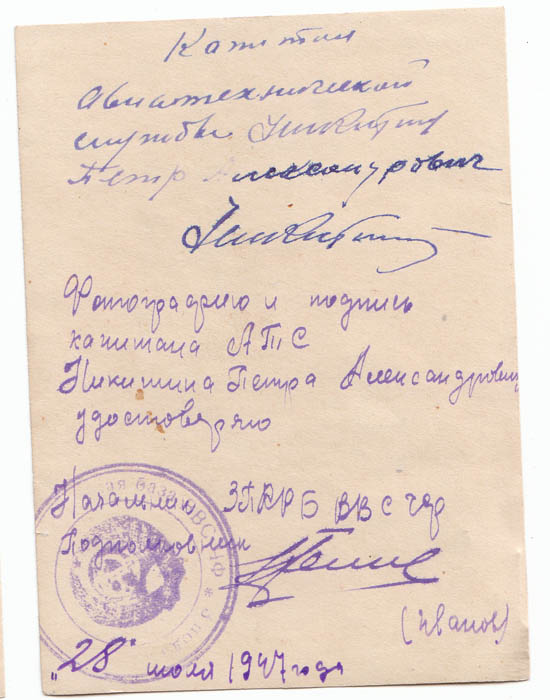 Капитан
Авиатехнической
службы Никитин
Петр Александрович
Никитин
Фотографию и подпись
капитана АТС
Никитина Петра Александровича
удостоверяю
Начальник ВВС ЧФ
Подполковник
(Иванов)
"28" июля 1947 года